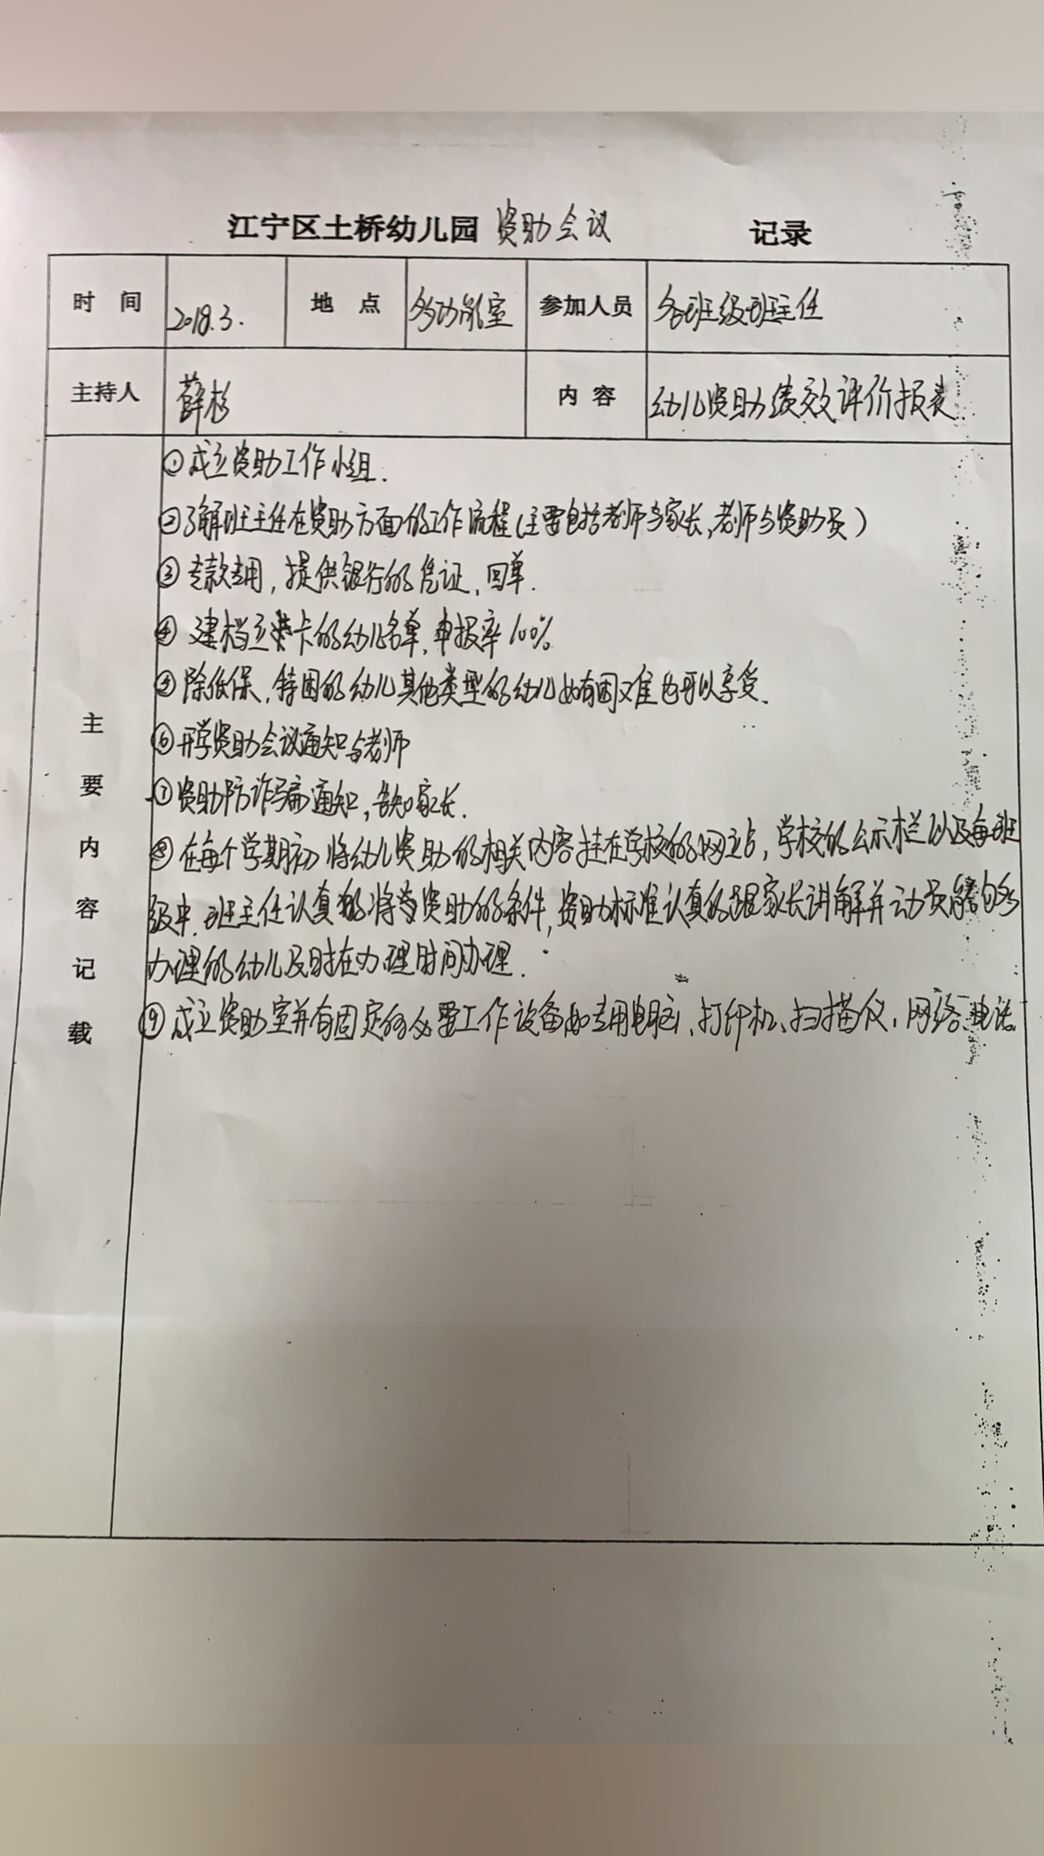 江宁区土桥幼儿园 资助会议 记录
时 间 2018.3. 地 点 多功能室 参加人员 各班级班主任
主持人 薛杉 内 容 幼儿资助绩效评价报表
主要内容记载
①成立资助工作小组.
②了解班主任在资助方面的工作流程(主要包括老师与家长,老师与资助员)
③专款专用,提供银行的凭证,回单.
④建档立卡的幼儿名单,申报率100%
⑤除低保,特困的幼儿其他类型的幼儿如有困难也可以享受.
⑥开学资助会议通知与老师
⑦资助防诈骗通知,告知家长.
⑧在每个学期初将幼儿资助的相关内容挂在学校的网站,学校的公示栏以及每班
级中.班主任认真将资助的条件,资助标准认真的跟家长讲解并动员
办理的幼儿及时在办理时间办理.
⑨成立资助室并有固定的必要工作设备如专用电脑、打印机、扫描仪,网络、电话